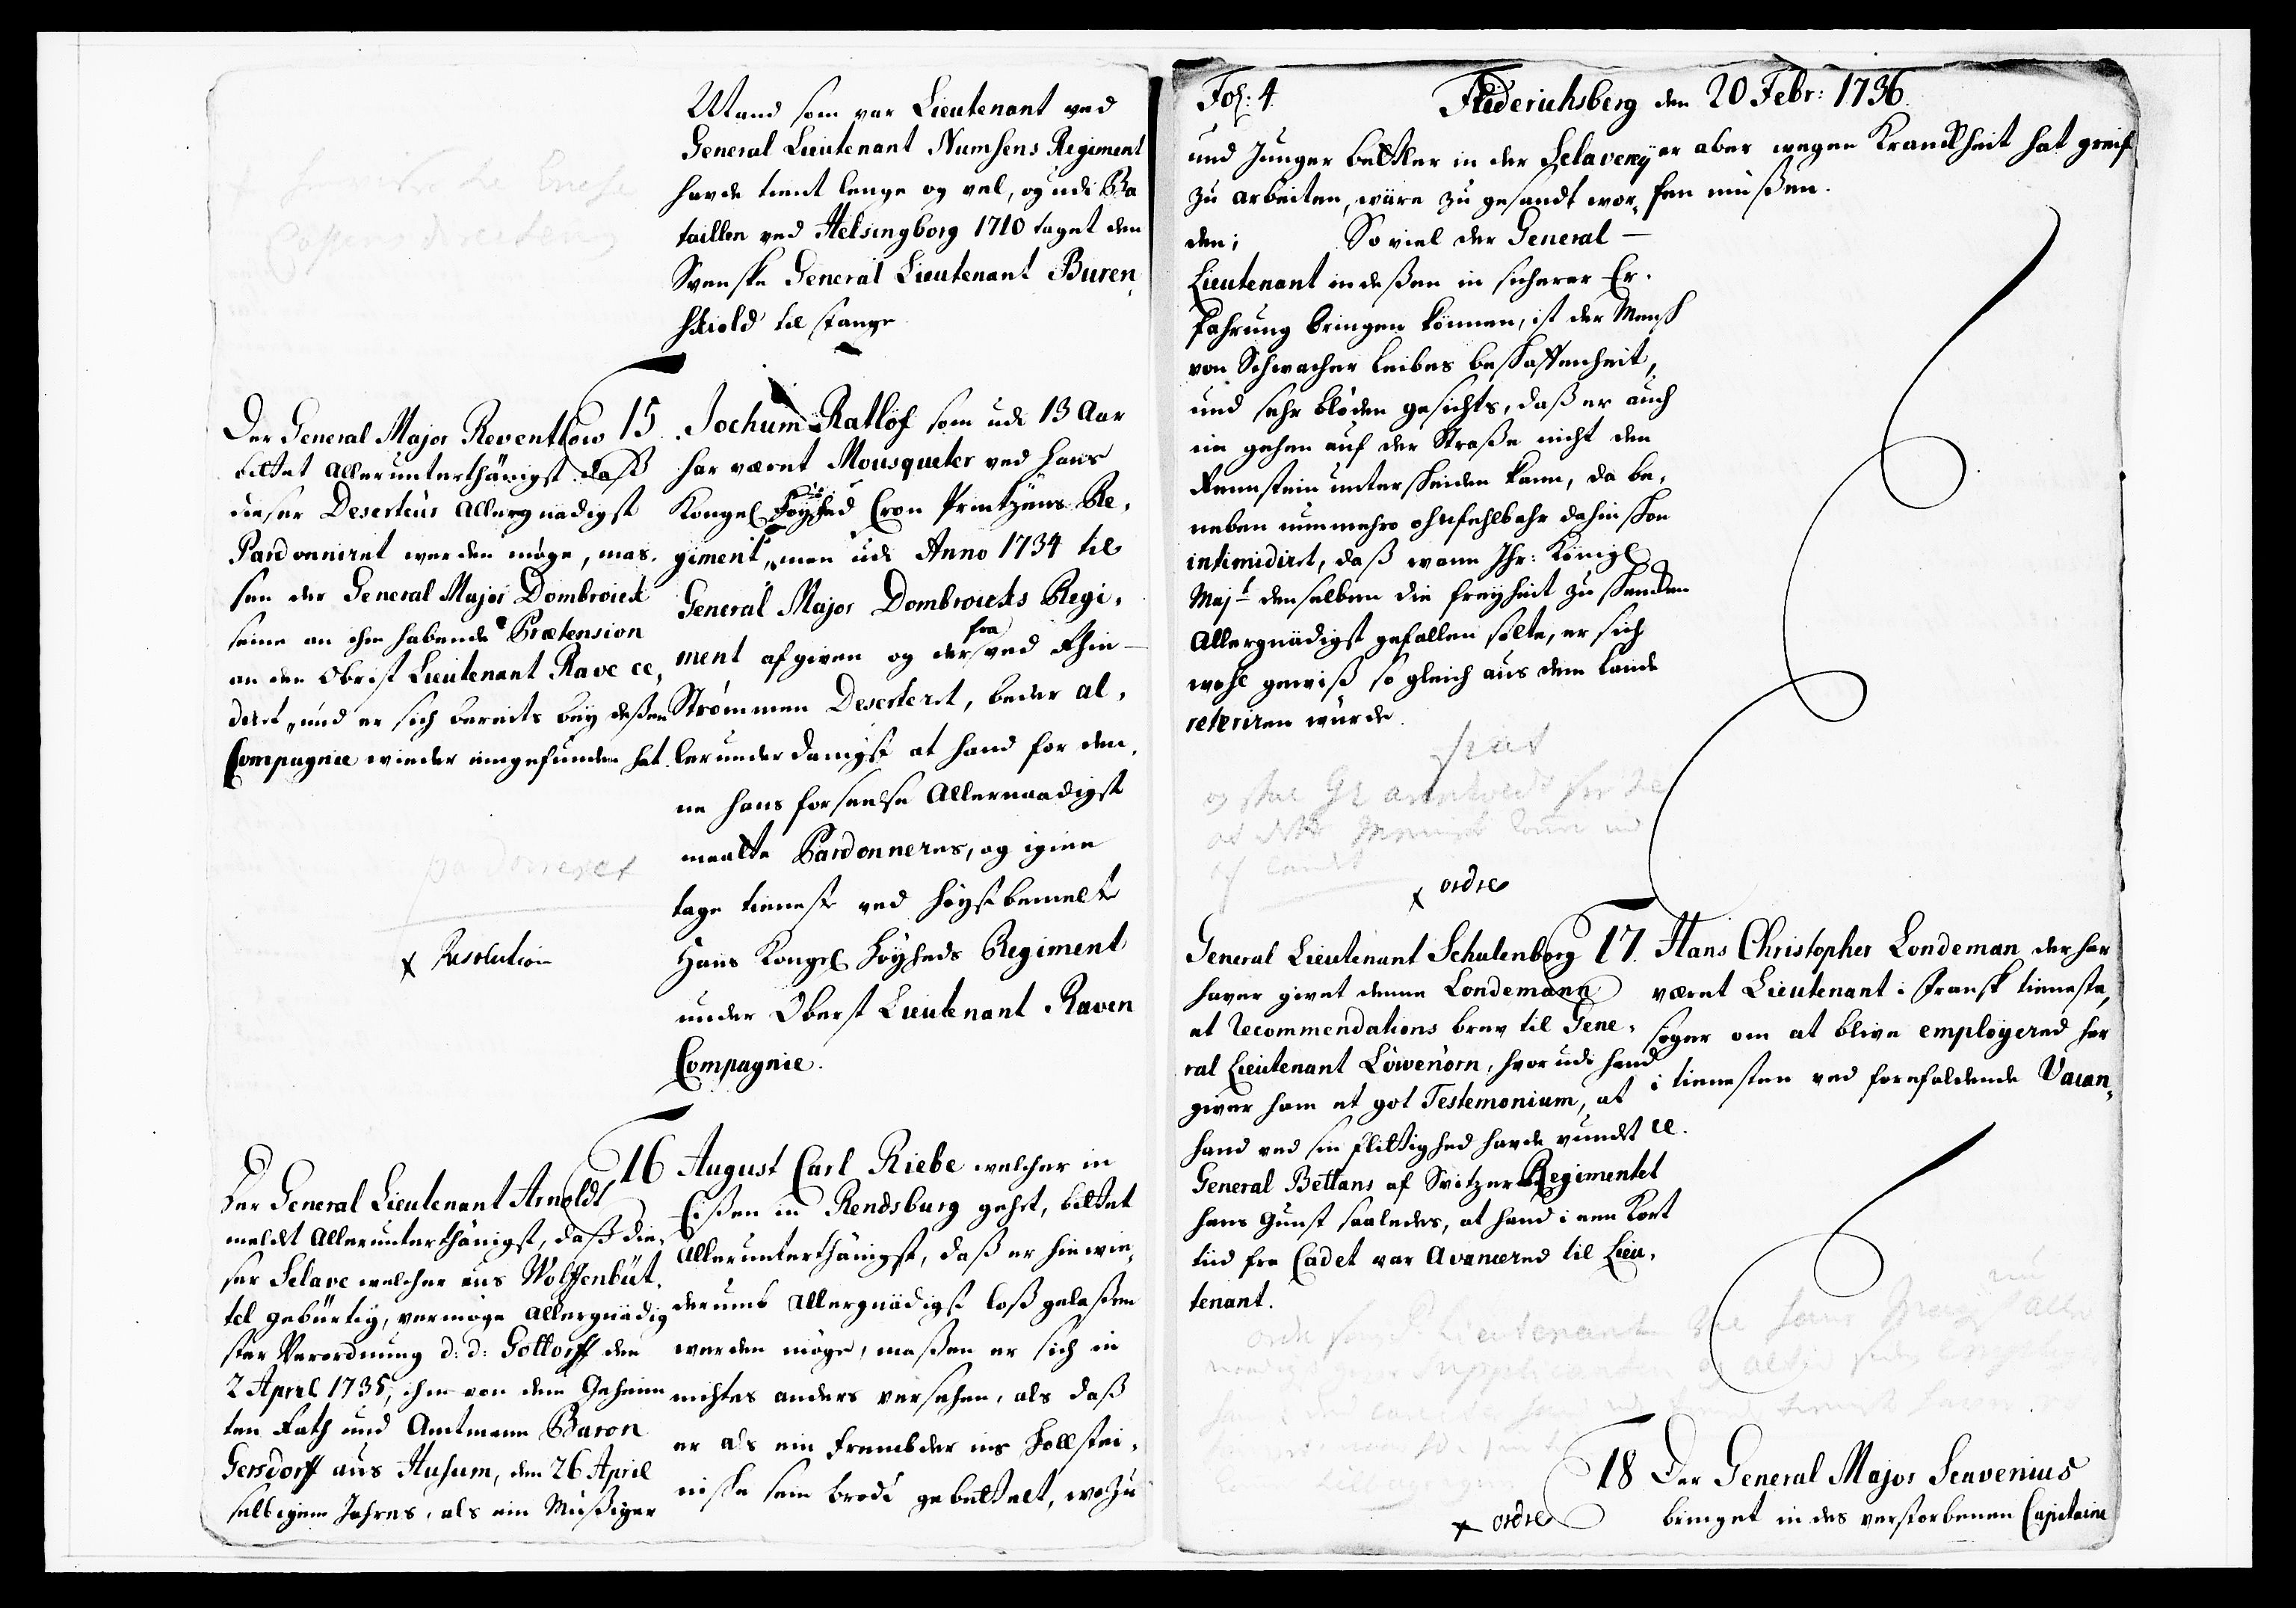 Mand som var Lieutenant ved
General Lieutenant Numsens Regiment
havde tient lenge og vel, og udi Ba
taillen ved Helsingborg 1710 taget den
Svenske General Lieutenant Buren,
skiold til fange
Der General Major Reventlow
bittet Allerunterthänigst daß
dieser Deserteur Allergnädigst
Pardonniret werden möge, mas,
sen der General Major Dombroick
seine an ihm habende Prætension
an den Obrist Lieutenant Rave ce,
diret, und er sich bereits bey deßen
Compagnie wieder eingefunden hat.
pardonneret
x Resolution
15. Jochum Ratlöf som udi 13 Aar
har været Mousqueter ved hans
Kongel Høyhed Cron Printzens Re,
giment, men udi Anno 1734 til
General Major Dombroicks Regi,
ment afgiven og der fra ved Rhin-
Strømmen Deserteret, beder al,
lerunderdanigst at hand for den,
ne hans forseelse Allernaadigst
maatte Pardonneres, og igien
tage tieneste ved høystbemelte
Hans Kongel Høyheds Regiment
under Oberst Lieutenant Raven
Compagnie.
Der General Lieutenant Arnoldt
meldet Allerunterthänigst, daß die,
ser Sclave welcher aus Wolffenbüt,
tel gebürtig, vermöge Allergnädig
ster Verordnung d: d: Gottorff den
2 April 1735, ihm von dem Geheim
ten Rath und Amtmann Baron
Gersdorff aus Husum, den 26 April
selbigen Jahres, als ein Müßiger
16 August Carl Riebe welcher in
Eißen in Rendsburg gehet, bittet
Allerunterthänigst, daß er hinwie,
derumb Allergnädigst loß gelaßen
werden möge, maßen er sich in
nichtes anders versehen, als daß
er als ein frembder ins Hollstei,
nische sein brodt gebettelt, wozu
Fol: 4.
Friderichsberg den 20 Febr: 1736.
und Junger bettler in der Sclaverey
zu arbeiten, wäre zu gesandt wor,
den; So viel der General-
Lieutenant indeßen in sicherer Er,
fahrung bringen können, ist der Mensch
von Schwacher leibes beschaffenheit,
und sehr blöden gesichts, daß er auch
im gehen auf der Straße nicht den
Rennstein unterscheiden kann, da be,
neben nunmehro ohnfehlbahr dahin schon
intimidiret, daß wann Ihr: Königl
Majt denselben die freyheit zu schencken
Allergnädigst gefallen solte, er sich
wohl gewiß so gleich aus dem Lande
reteriren würde.
er aber wegen Kranckheit hat greif
fen müßen.
fiat
og skal
x ordre
General Lieutenant Schulenborg
haver givet denne Londemann
et Recommendations brev til Gene,
ral Lieutenant Löwenörn, hvor udi hand
giver ham et got Testemonium, at
hand ved sin flittighed havde vundet ce.
General Bettans af Svitzer Regimentet
hans gunst saaledes, at hand i een kort
tiid fra Cadet var Avancered til Lieu,
tenant.
17. Hans Christopher Londeman der har
været Lieutenant i Fransk tieneste,
søger om at blive employered her
i tienesten ved forefaldende Vacan,
x ordre
18 Der General Major Scavenius
bringet in des verstorbenen Capitaine